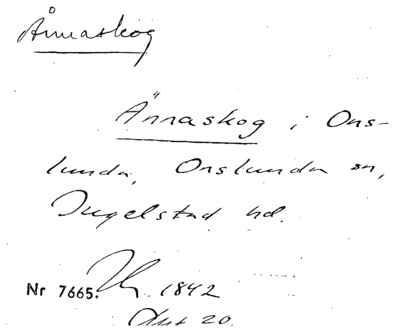 Ånnaskog
Ännaskog i Ons-
lunda, Onslunda sn,
Ingelstad hd.
Nr 7665. 1842
Akt 20